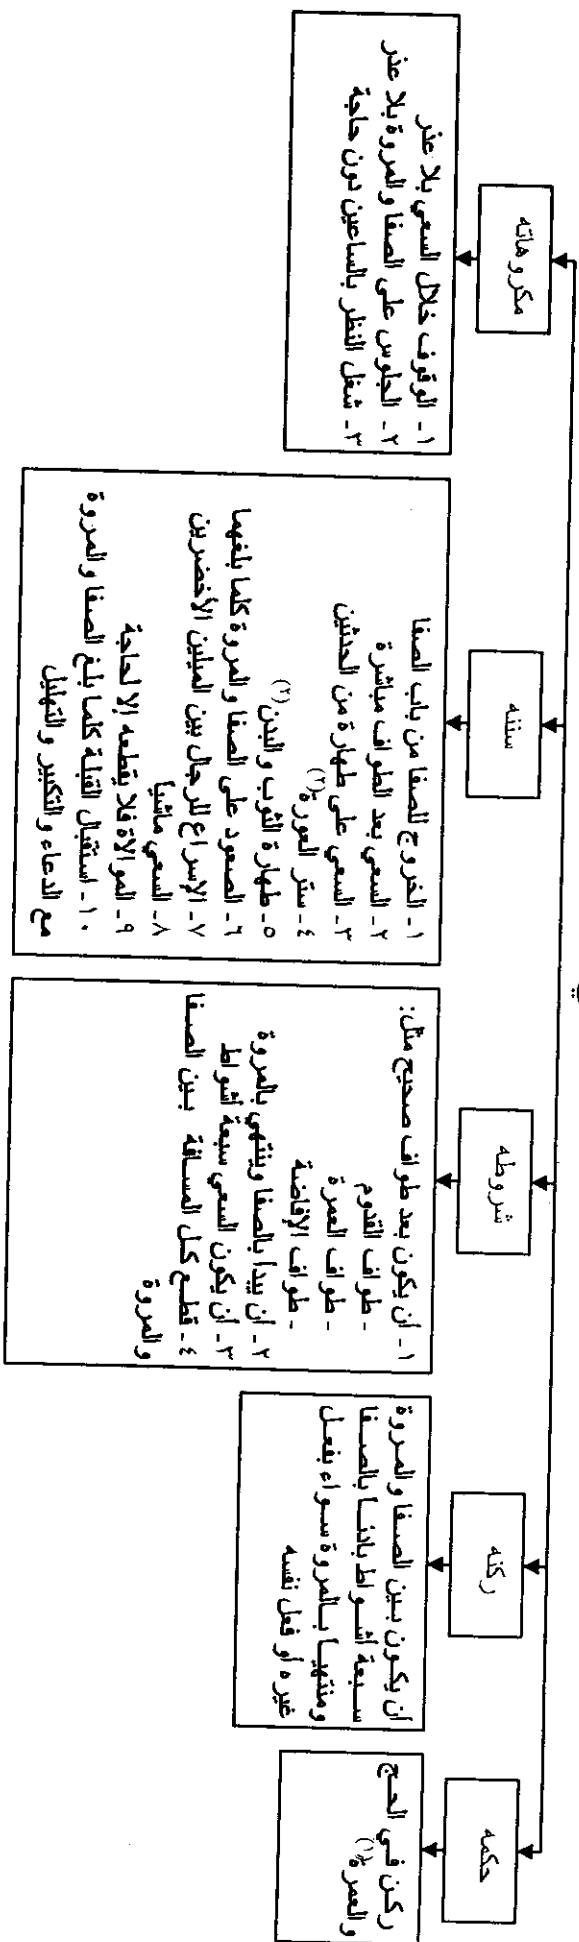 حكمه
ركن في الحج
والعمرة(١)
ركنه
أن يكون بين الصفا والمروة
سبعة أشواط بادئا بالصفا
ومنتهيا بالمروة سواء بفعل
غيره أو فعل نفسه
شروطه
١- أن يكون بعد طواف صحيح مثل:
- طواف القدوم
- طواف العمرة
- طواف الإفاضة
٢- أن يبدأ بالصفا وينتهي بالمروة
٣- أن يكون السعي سبعة أشواط
٤- قطع كل المسافة بين الصفا
والمروة
سننه
١- الخروج للصفا من باب الصفا
٢- السعي بعد الطواف مباشرة
٣- السعي على طهارة من الحدثين
٤- ستر العورة(٢)
٥- طهارة الثوب والبدن(٢)
٦- الصعود على الصفا والمروة كلما بلغهما
٧- الإسراع للرجال بين الميلين الأخضرين
٨- السعي ماشياً
٩- الموالاة فلا يقطعه إلا لحاجة
١٠- استقبال القبلة كلما بلغ الصفا والمروة
مع الدعاء والتكبير والتهليل
مكروهاته
١- الوقوف خلال السعي بلا عذر
٢- الجلوس على الصفا والمروة بلا عذر
٣- شغل النظر بالساعين دون حاجة